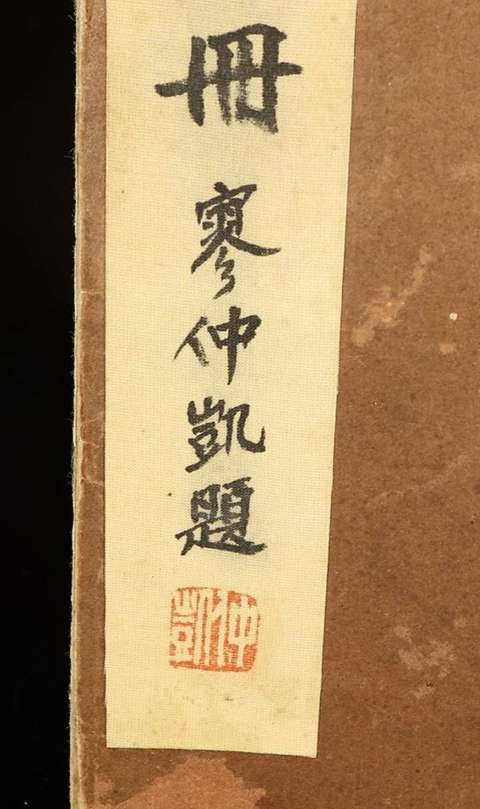 冊
廖仲凱題
仲凱